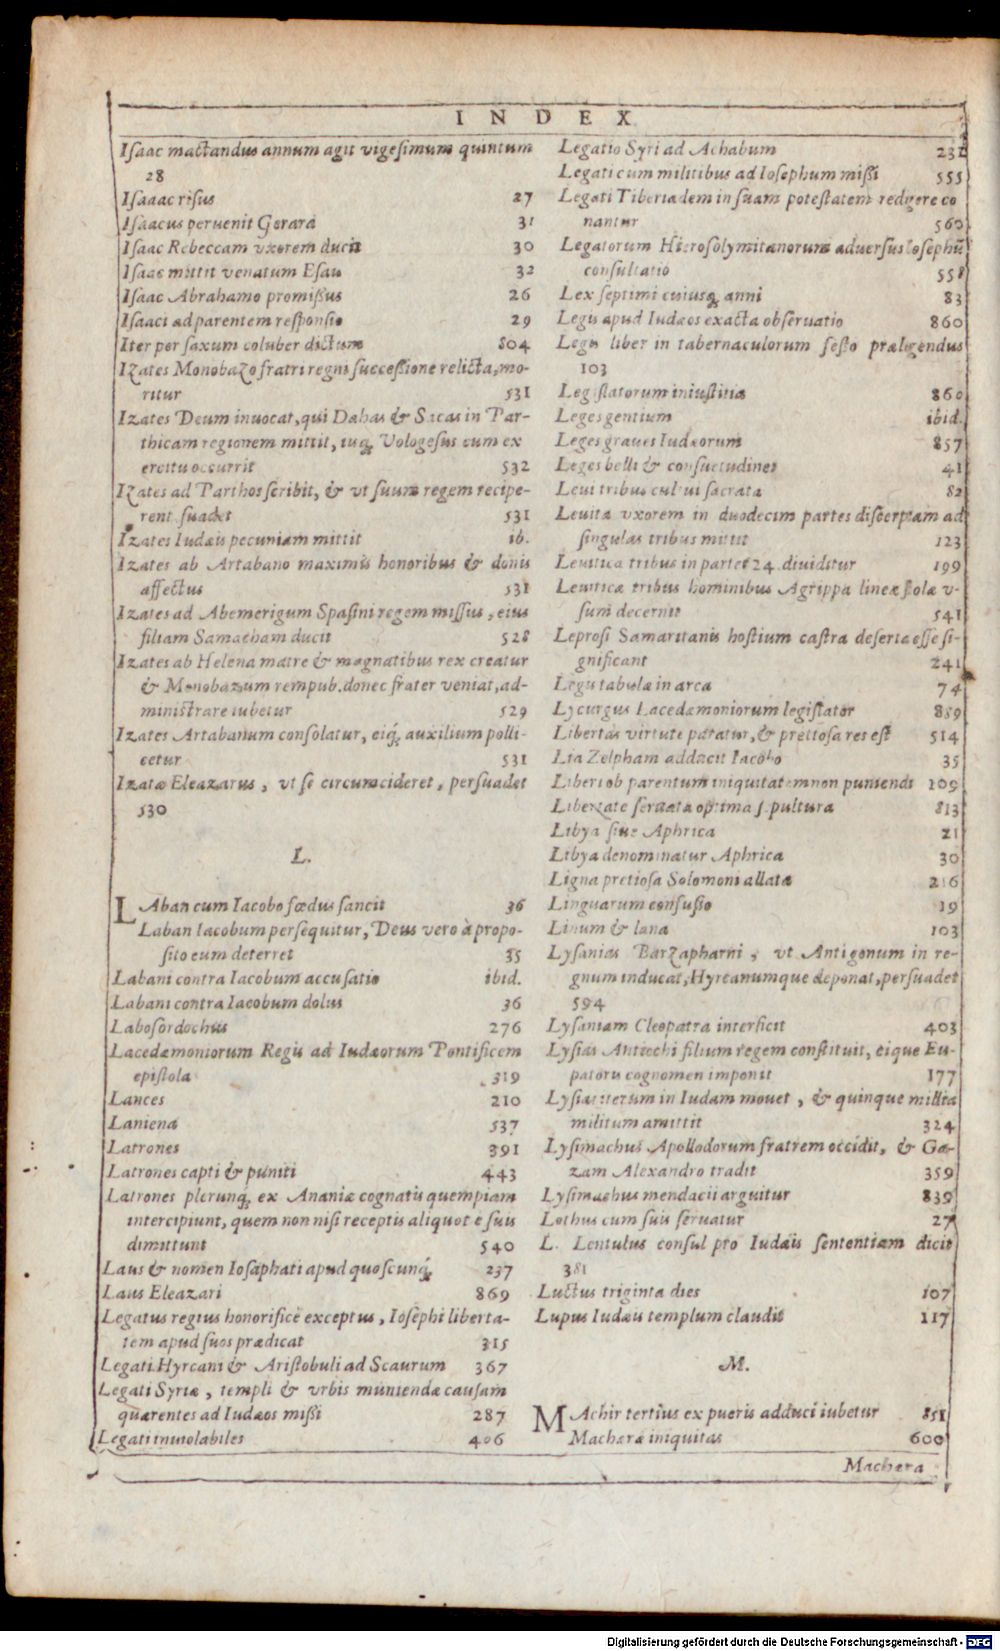 INDEX
Isaac mactandus annum agit vigesimum quintum
28
Isaaac risus 27
Isaacus peruenit Gerara 31
Isaac Rebeccam vxorem ducit 30
Isaac mittit venatum Esau 32
Isaac Abrahamo promissus 26
Isaaci ad parentem responsio 29
Iter per saxum coluber dictum 804
Izates Monobazo fratri regni successione relicta, mo-
ritur 531
Izates Deum inuocat, qui Dahas & Sacas in Par-
thicam regionem mittit, iisq́ Vologesus cum ex
ercitu occurrit 532
Izates ad Parthos scribit, & vt suum regem recipe-
rent suadet 531
Izates Iudæis pecuniam mittit ib.
Izates ab Artabano maximis honoribus & donis
affectus 531
Izates ad Abemerigum Spasini regem missus, eius
filiam Samacham ducit 528
Izates ab Helena matre & magnatibus rex creatur
& Monobazum rempub. donec frater veniat, ad-
ministrare iubetur 529
Izates Artabanum consolatur, eiq́; auxilium polli-
cetur 531
Izatæ Eleazarus, vt se circumcideret, persuadet
530
L.
LAban cum Iacobo fœdus sancit 36
Laban Iacobum persequitur, Deus vero à propo-
sito eum deterret 35
Labani contra Iacobum accusatio ibid.
Labani contra Iacobum dolus 36
Labosordochus 276
Lacedæmoniorum Regis ad Iudæorum Pontificem
epistola 319
Lances 210
Laniena 537
Latrones 391
Latrones capti & puniti 443
Latrones plerunq; ex Ananiæ cognatis quempiam
intercipiunt, quem non nisi receptis aliquot e suis
dimittunt 540
Laus & nomen Iosaphati apud quoscunq́; 237
Laus Eleazari 869
Legatus regius honorificè exceptus, Iosephi liberta-
tem apud suos prædicat 315
Legati Hyrcani & Aristobuli ad Scaurum 367
Legati Syriæ, templi & vrbis muniendæ causam
quærentes ad Iudæos missi 287
Legati inuiolabiles 406
Legatio Syri ad Achabum 231
Legati cum militibus ad Iosephum missi 555
Legati Tiberiadem in suam potestatem redigere co
nantur 560
Legatorum Hierosolymitanorum aduersus Iosephũ
consultatio 558
Lex septimi cuiusq; anni 83
Legis apud Iudæos exacta obseruatio 860
Legis liber in tabernaculorum festo prælegendus
103
Legislatorum iniustitia 860
Leges gentium ibid.
Leges graues Iudæorum 857
Leges belli & consuetudines 41
Leui tribus cultui sacrata 82
Leuitæ vxorem in duodecim partes discerptam ad
singulas tribus mittit 123
Leuitica tribus in partes 24. diuiditur 199
Leuiticæ tribus hominibus Agrippa lineæ stolæ v-
sum decernit 541
Leprosi Samaritanis hostium castra deserta esse si-
gnificant 241
Legis tabulæ in arca 74
Lycurgus Lacedæmoniorum legislator 859
Libertas virtute paratur, & pretiosa res est 514
Lia Zelpham adducit Iacobo 35
Liberi ob parentum iniquitatem non puniendi 109
Libertate seruata optima sepultura 813
Libya siue Aphrica 21
Libya denominatur Aphrica 30
Ligna pretiosa Solomoni allata 216
Linguarum confusio 19
Linum & lana 103
Lysanias Barzapharni, vt Antigonum in re-
gnum inducat, Hyrcanumque deponat, persuadet
594
Lysaniam Cleopatra interficit 403
Lysias Antiochi filium regem constituit, eique Eu-
patoris cognomen imponit 177
Lysias iterum in Iudam mouet, & quinque millia
militum amittit 324
Lysimachus Apollodorum fratrem occidit, & Ga-
zam Alexandro tradit 359
Lysimachus mendacii arguitur 839
Lothus cum suis seruatur 27
L. Lentulus consul pro Iudæis sententiam dicit
381
Luctus triginta dies 107
Lupus Iudæis templum claudit 117
M.
MAchir tertius ex pueris adduci iubetur 851
Machæræ iniquitas 600
Machæra
Digitalisierung gefördert durch die Deutsche Forschungsgemeinschaft - DFG